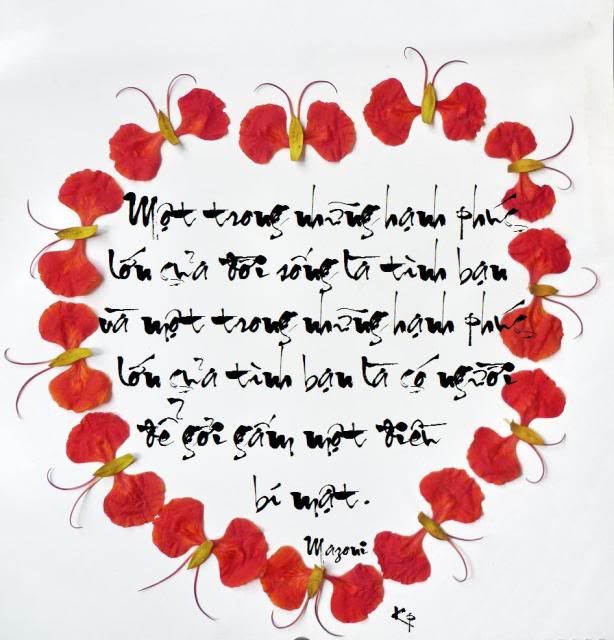 Một trong những hạnh phúc
lớn của đời sống là tình bạn
và một trong những hạnh phúc
lớn của tình bạn là có người
để gởi gấm một điều
bí mật.
Mazoni
KP